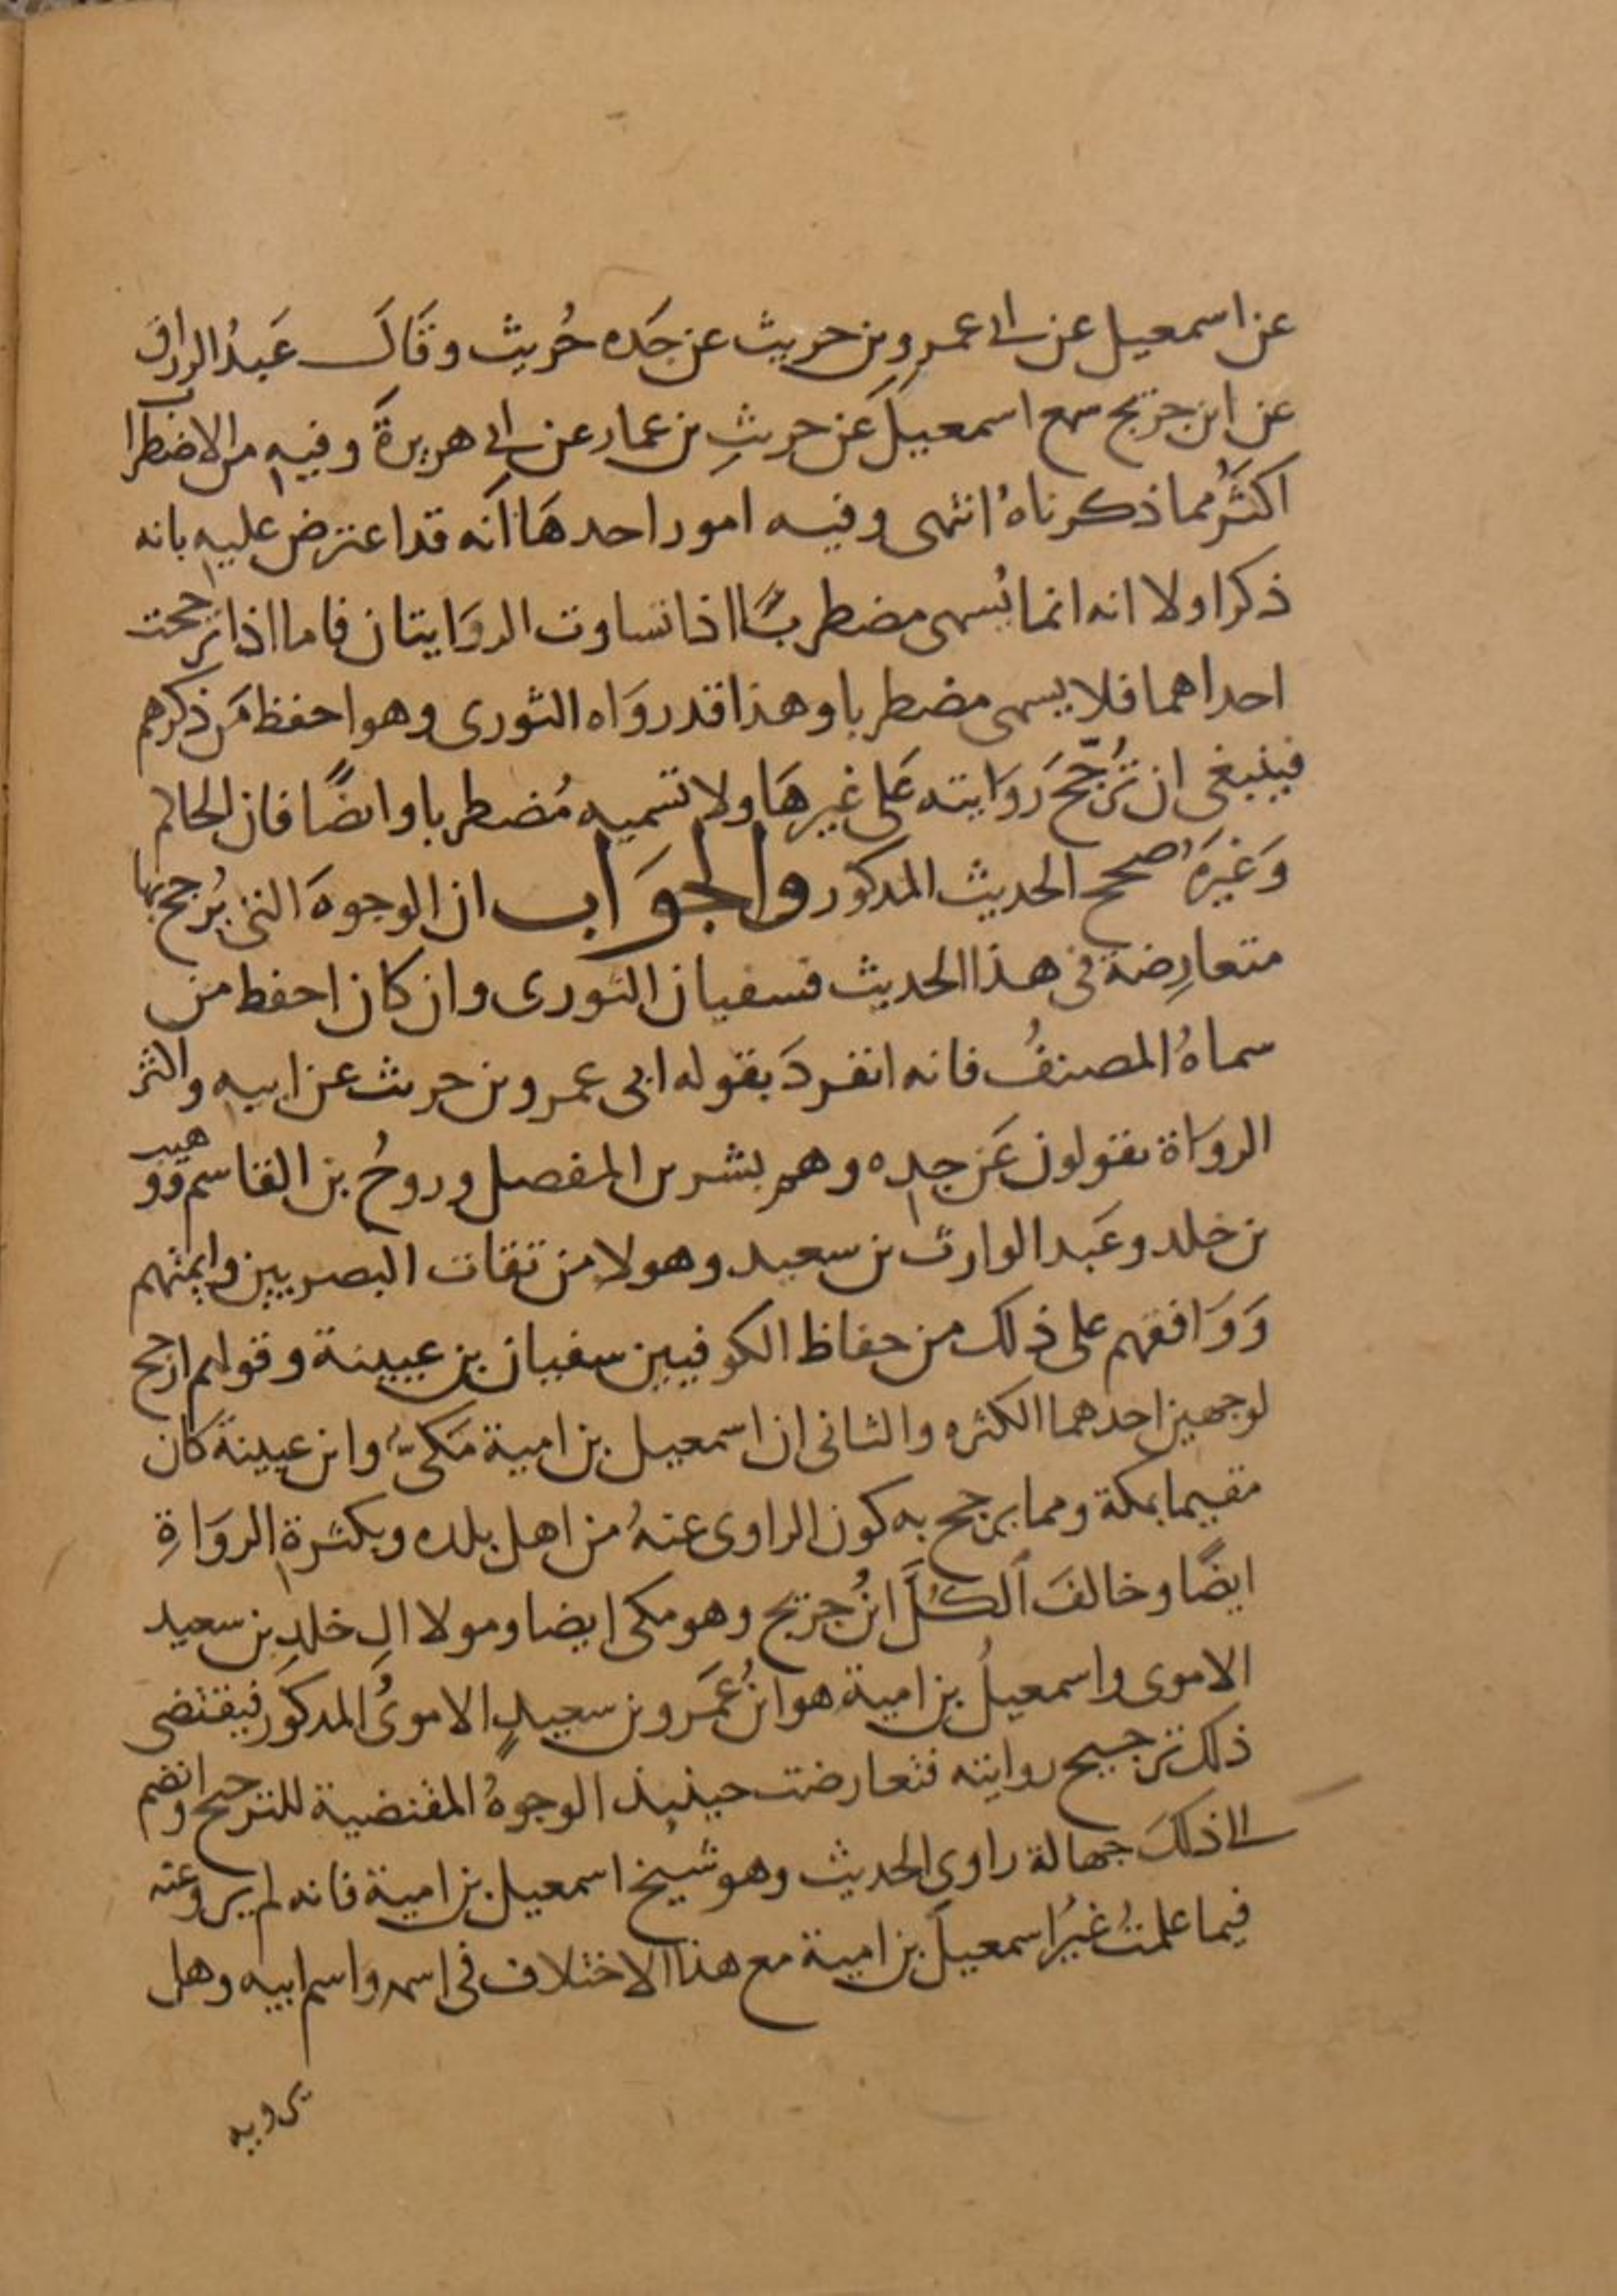 عن اسمعيل عن ابى عمرو بن حريث عن جَده حُريث وقَالَ عَبدُ الرزاق
عن ابن جريج سمع اسمعيلَ عَن حريثِ بن عمار عن ابى هريرةَ وفيه من الاضطراب
اكثَرُ مما ذكرناهُ انتهى وفيه امور احدهَا انَه قد اعترض عليه بانه
ذكر اولا انه انما يُسمى مضطربًا اذا تساوت الروَايتان فاما اذا ترجحت
احداهما فلا يسمى مضطربا وهذا قد روَاه الثورى وهو احفظ مَن ذكرهم
فينبغى ان تُرجَّحَ روَايته عَلى غيرهَا ولا تسميه مُضطربا وايضًا فان الحاكم
وَغيرَهُ صحح الحديث المذكور والجوَاب ان الوجوهَ التى يُرجح بها
متعارِضة فى هذا الحديث فسفيان الثورى وان كان احفظ من
سماهُ المصنفُ فانه انفردَ بقوله ابى عمرو بن حريث عن ابيه واكثر
الروَاة يقولون عَن جده وهم بشر بن المفصل وروحُ بن القاسم ووهيب
بن خلد وعَبد الوارث بن سعيد وهولا من ثقات البصريين وايمتهم
وَوَافقهم على ذلك من حفاظ الكوفيين سفيان بن عيينة وقولهم ارجح
لوجهين احدهما الكثره والثانى ان اسمعيل بن امية مَكىّ وابن عيينة كان
مقيما بمكة ومما يرجح به كون الراوى عنهُ من اهل بلده وبكثرة الروَاةِ
ايضًا وخالفَ الكُلَّ ابنُ جريج وهو مكى ايضا ومولا الِ خلدِ بن سعيد
الاموى واسمعيلُ بن امية هو ابنُ عَمَرو بن سعيدٍ الاموىُ المذكوَر فيقتضى
ذلك ترجيح روايته فتعارضت حينيذ الوجوهُ المقتضية للترجيح وانضم
الى ذلكَ جهالة راوى الحديث وهو شيخ اسمعيل بن امية فانه لم يرو عنه
فيما علمتُ غيرُ اسمعيلَ بن امية مع هذا الاختلاف فى اسمه واسم ابيه وهل
يرويه